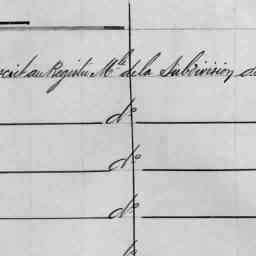 au Registre Mle de la Subdivision
do
do
do